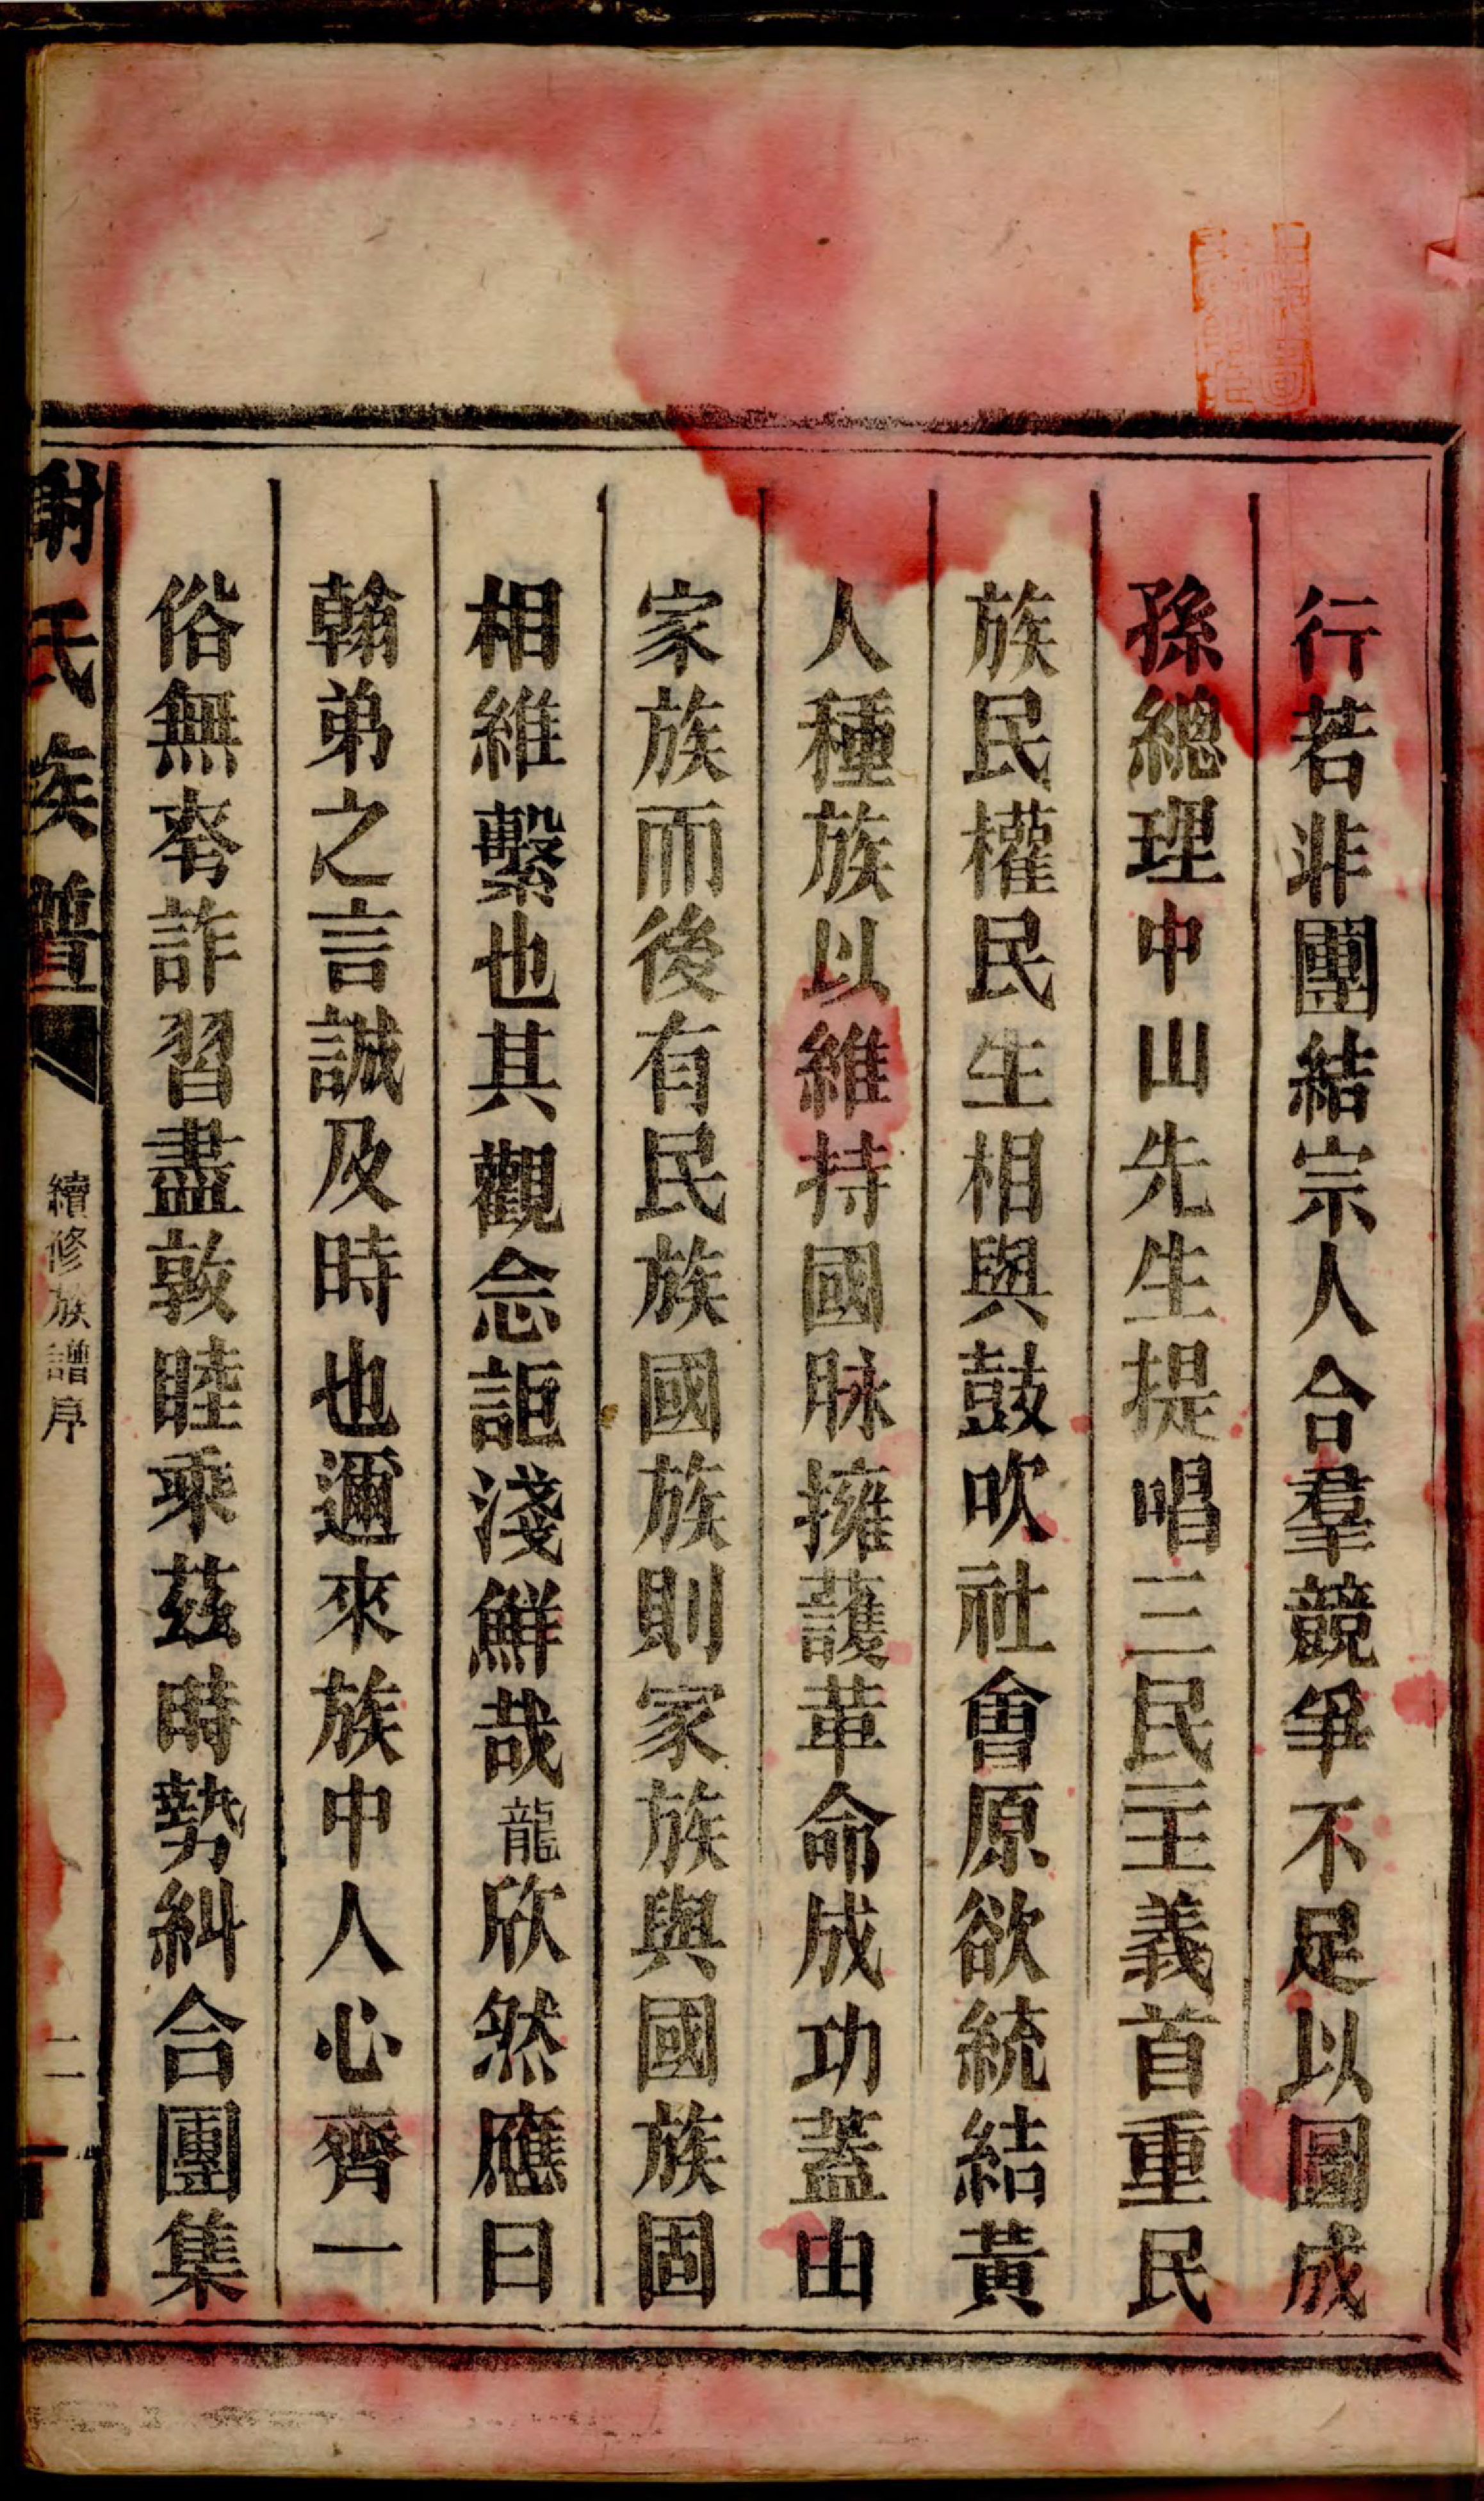 行若非團結宗人合羣競爭不足以圖成
孫總理中山先生提唱三民主義首重民
族民權民生相與鼓吹社會原欲統結黃
人種族以維持國脉擁護革命成功蓋由
家族而後有民族國族則家族與國族固
相維繫也其觀念詎淺鮮哉龍欣然應曰
翰弟之言誠及時也邇來族中人心齊一
俗無奢詐習盡敦睦乘茲時勢糾合團集
謝氏族譜
續修族譜序
二